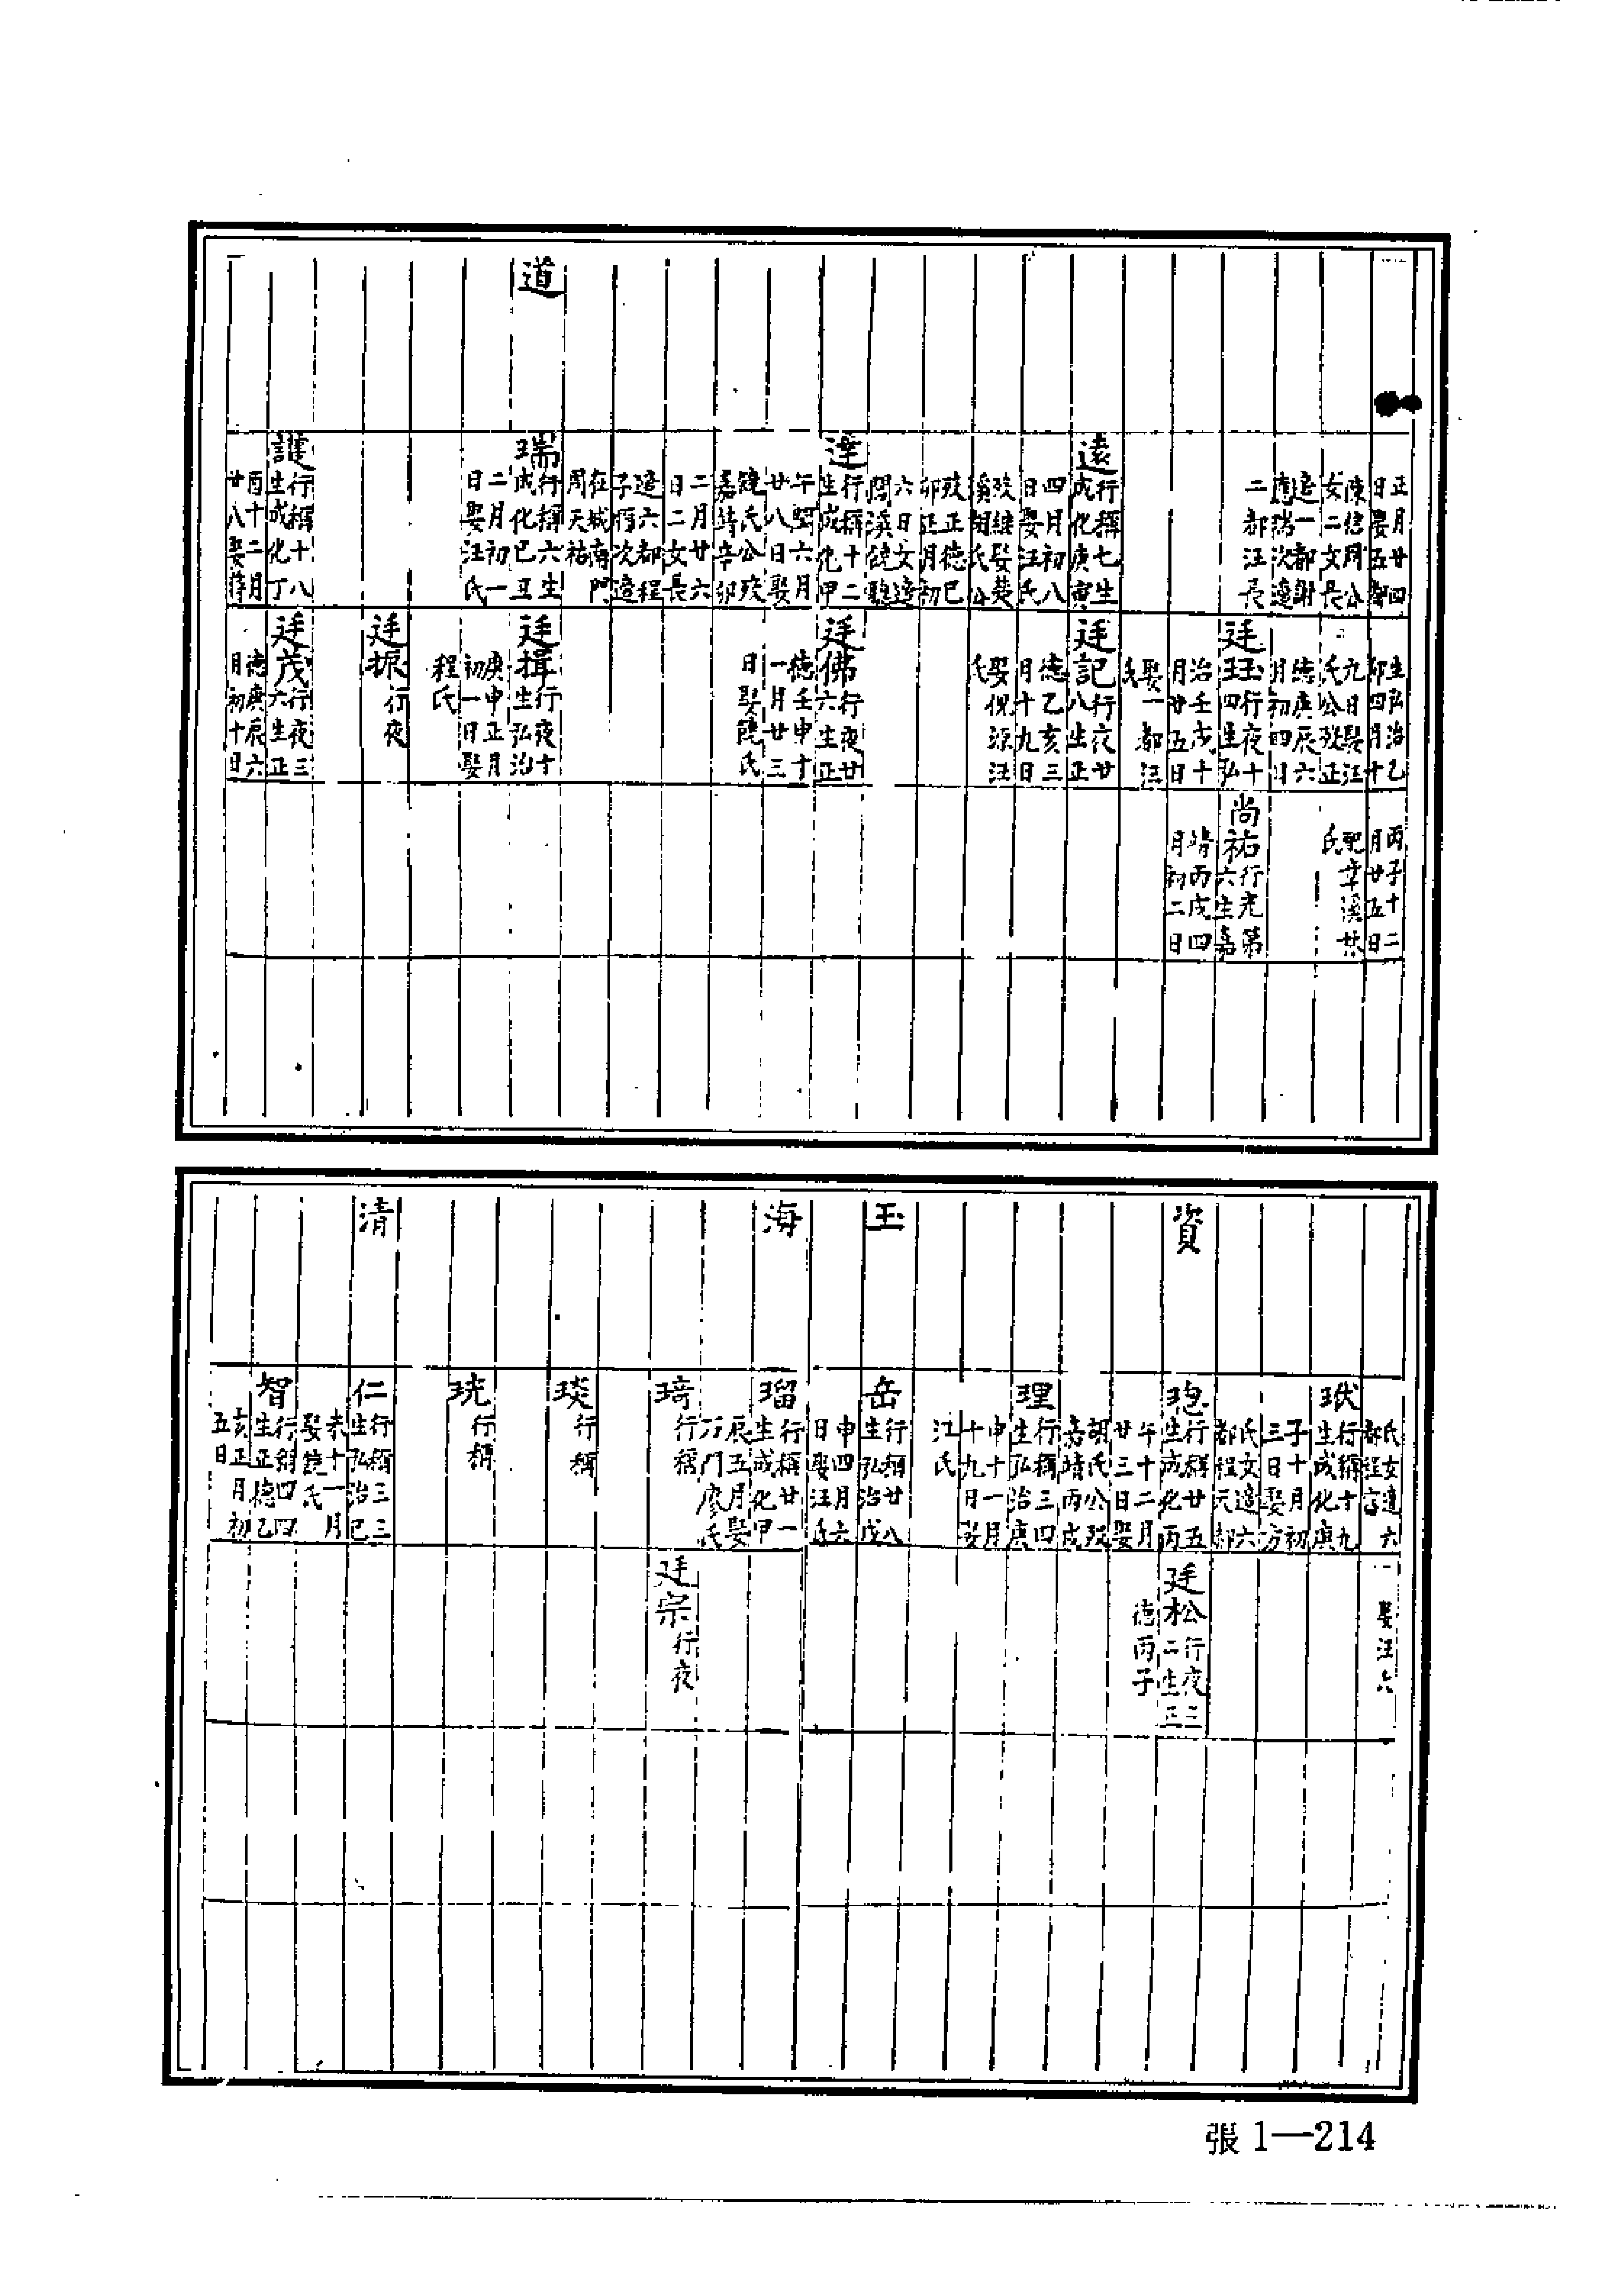 道
正月廿四
日娶五都
陳信周公
女二女長
適一都謝
應瑞次適
二都汪長
遠
行稱七生
成化庚寅
四月初八
日娶汪氏
歿繼娶婺
溪胡氏公
歿正德己
卯正月初
六日女適
閔溪饒聰
達
行稱十二
生成化甲
午閏六月
廿八日娶
饒氏公歿
嘉靖辛卯
二月廿六
日二女長
適六都程
子 次適
在城南門
周天祐
瑞
行稱六生
成化己丑
二月初一
日娶汪氏
謹
行稱十八
生成化丁
酉十二月
廿八娶蔣
生弘治乙
卯四月十
九日娶江
氏公歿正
德庚辰六
月初四日
廷玉
行夜十
四生弘
治壬戌十
月廿五日
娶一都汪
氏
廷記
行夜廿
八生正
德乙亥三
月十九日
娶倪源汪
氏
廷佛
行夜廿
六生正
德壬申十
一月廿三
日娶饒氏
廷揖
行夜十
生弘治
庚申正月
初一日娶
程氏
廷振
行夜
廷茂
行夜三
六生正
德庚辰六
月初十日
丙子十二
月廿五日
配章溪林
氏
尚祐
行光第
六生嘉
靖丙戌四
月初二日
資
玉
海
清
氏女適六
都程言
玳
行稱十九
生成化庚
子十月初
三日娶方
氏女適六
都程天郝
玸
行稱廿五
生成化丙
午十二月
廿三日娶
胡氏公歿
嘉靖丙戌
理
行稱三四
生弘治庚
申十一月
十九日娶
江氏
岳
行稱廿八
生弘治戊
申四月六
日娶汪氏
瑠
行稱廿一
生成化甲
辰五月娶
万門廖氏
琦
行稱
琰
行稱
珖
行稱
仁
行稱三三
生弘治己
未十一月
娶饒氏
智
行稱四四
生正德乙
亥正月初
五日
娶汪氏
廷松
行夜三
二生正
德丙子
廷宗
行夜
張1—214